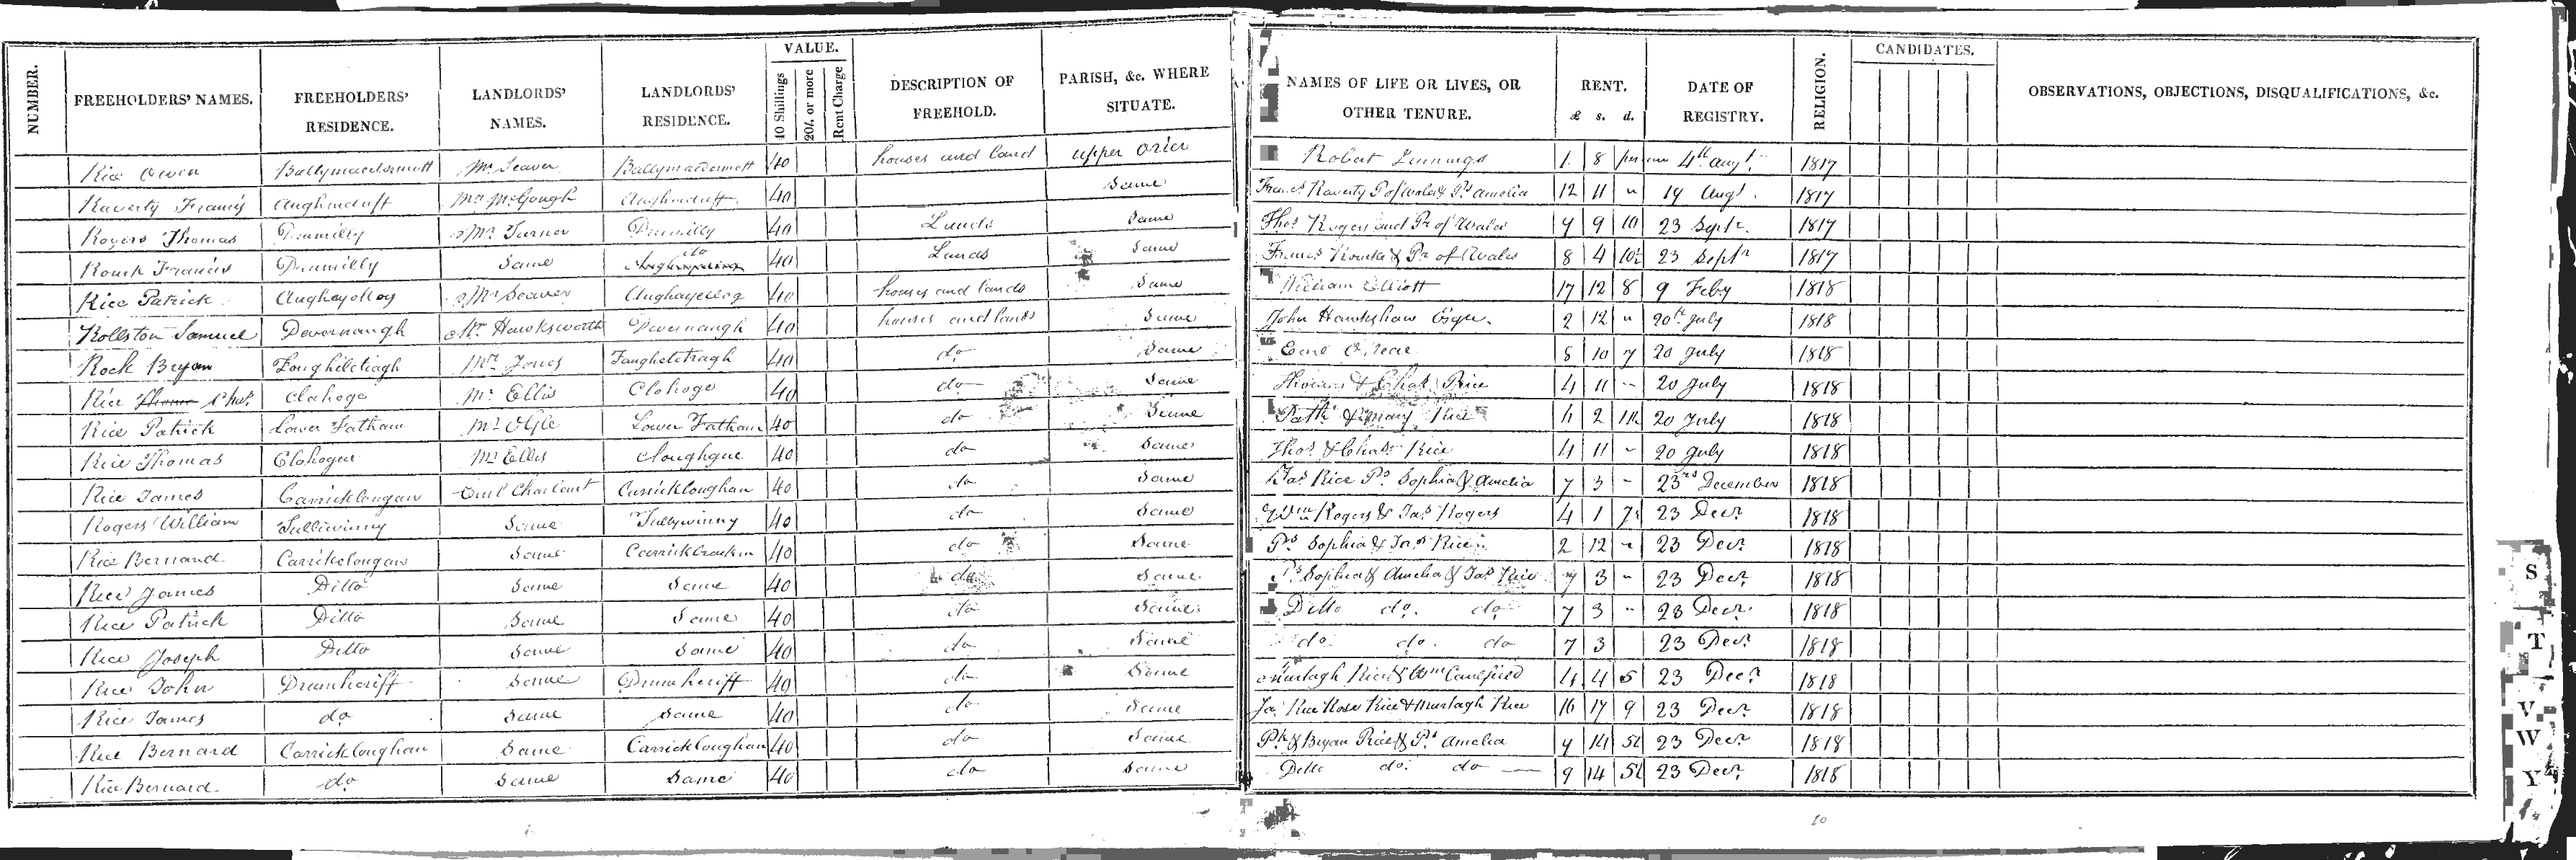 NUMBER. FREEHOLDERS' NAMES. FREEHOLDERS' RESIDENCE. LANDLORDS' NAMES. LANDLORDS' RESIDENCE. VALUE. 40 Shillings 20l. or more Rent Charge DESCRIPTION OF FREEHOLD. PARISH, &c. WHERE SITUATE. NAMES OF LIFE OR LIVES, OR OTHER TENURE. RENT. £ s. d. DATE OF REGISTRY. RELIGION. CANDIDATES. OBSERVATIONS, OBJECTIONS, DISQUALIFICATIONS, &c.
Rice Owen Ballymacdermott Mr Seaver Ballymacdermott 40 houses and land upper orier Robert Jennings 1 8 4th augt 1817
Raverty Francis Aughnduff Mr McGough Aughnduff 40 Same Francs Raverty P of Wales & Ps Amelia 12 11 " 19 Augt. 1817
Rogers Thomas Drumilly Mr Turner Drumilly 40 Lands Same Thos Rogers and Pr of Wales 4 9 10 23 Septr. 1817
Rourk Francis Drumilly Same do 40 Lands Same Francs Rourke & Pr of Wales 8 4 10½ 23 Septr 1817
Rice Patrick Aughayolloy Mr Seaver 40 houses and lands Same William Elliott 17 12 8 9 Feby 1818
Rollston Samuel Devernaugh Mr Hawksworth Devernaugh 40 houses and lands Same John Hawkshaw Esqr. 2 12 " 20th July 1818
Rock Bryan Foughiletragh Mr Jones Faughiletragh 40 do Same 8 10 7 20 July 1818
Rice Thomas Chas. Clohoge Mr Ellis Clohoge 40 do Same Thomas & Chas Rice 4 11 - 20 July 1818
Rice Patrick Lower Fatham Mr Ogle Lower Fatham 40 do Same Patk & Mary Rice 4 2 20 July 1818
Rice Thomas Clohogue Mr Ellis Cloughgue 40 do Same Thos & Chas Rice 4 11 - 20 July 1818
Rice James Carricklougan Earl Charlemt Carrickloughan 40 do Same Jas Rice Ps Sophia & Amelia 7 3 - 23rd December 1818
Rogers William Tulliwinny Same Tullywinny 40 do Same Wm Rogers & Jas Rogers 4 1 23 Decr 1818
Rice Bernard Carrickelougan Same 40 do Same Ps Sophia & Jas Rice 2 12 - 23 Decr 1818
Rice James Ditto Same Same 40 do Same Ps Sophia & Amelia & Jas Rice 7 3 - 23 Decr 1818
Rice Patrick Ditto Same Same 40 do Same Ditto do. do 7 3 " 23 Decr 1818
Rice Joseph Ditto Same Same 40 do Same do do. do 7 3 23 Decr 1818
Rice John Drumheriff Same Drumheriff 40 do Same Murtagh Rice & Wm Caulfield 4 4 5 23 Decr 1818
Rice James do Same Same 40 do Same Jas Rice Rose Rice & Murtagh Rice 16 17 9 23 Decr 1818
Rice Bernard Carrickloughan Same Carrickloughan 40 do Same Pk & Bryan Rice & Ps Amelia 9 14 5½ 23 Decr 1818
Rice Bernard do Same Same 40 do Same Ditto do. do 9 14 5½ 23 Decr 1818
S
T
V
W
Y
10